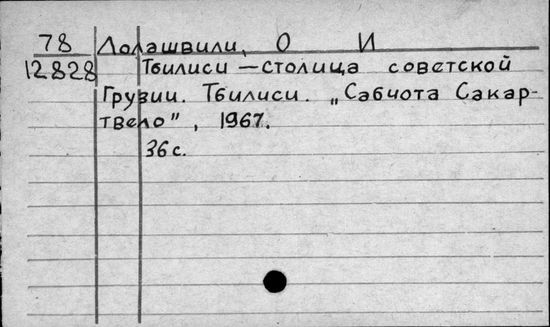 78 Лолашвили, О И
12828 Тбилиси — столица советской
Грузии. Тбилиси. „Сабчота Сакар-
твело", 1967.
36 с.